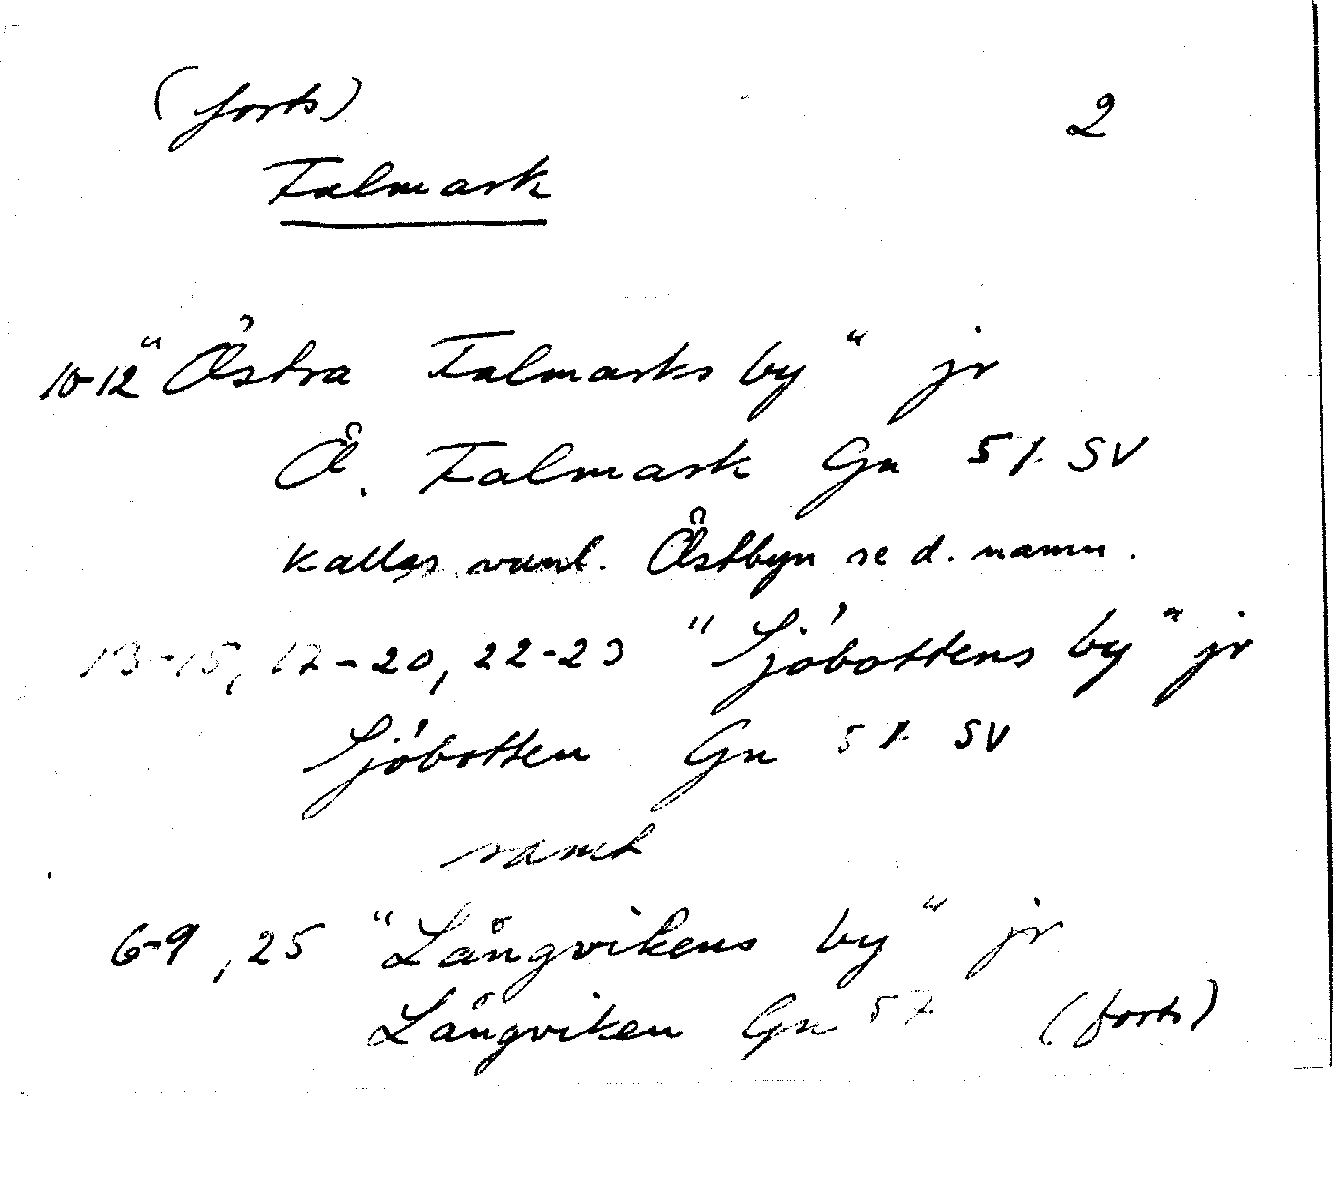 (forts) 2
Falmark
10-12 "Östra Falmarks by" jr
Ö. Falmark Gn 57. SV
kallas vanl. Östbyn se d. namn.
13-15, 17-20, 22-23 "Sjöbottens by" jr
Sjöbotten Gn 57. SV
samt
6-9, 25 "Långvikens by" jr
Långviken Gn 57 (forts)